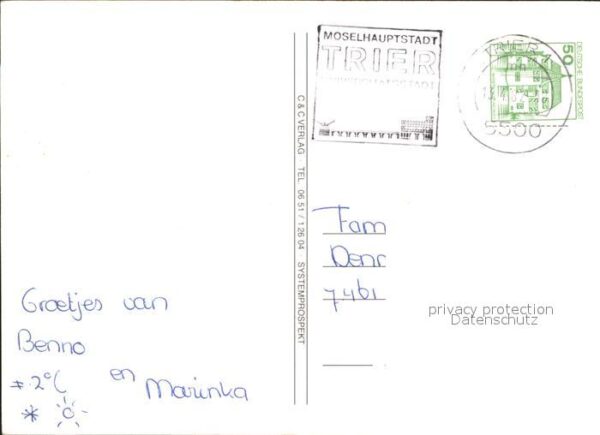 MOSELHAUPTSTADT
TRIER
TRIER 1
5500
50
DEUTSCHE BUNDESPOST
C & C VERLAG TEL. 06 51 / 1 26 04 SYSTEMPROSPEKT
Fam
Denr
7461
privacy protection
Datenschutz
Groetjes van
Benno
en
Marinka
2°C